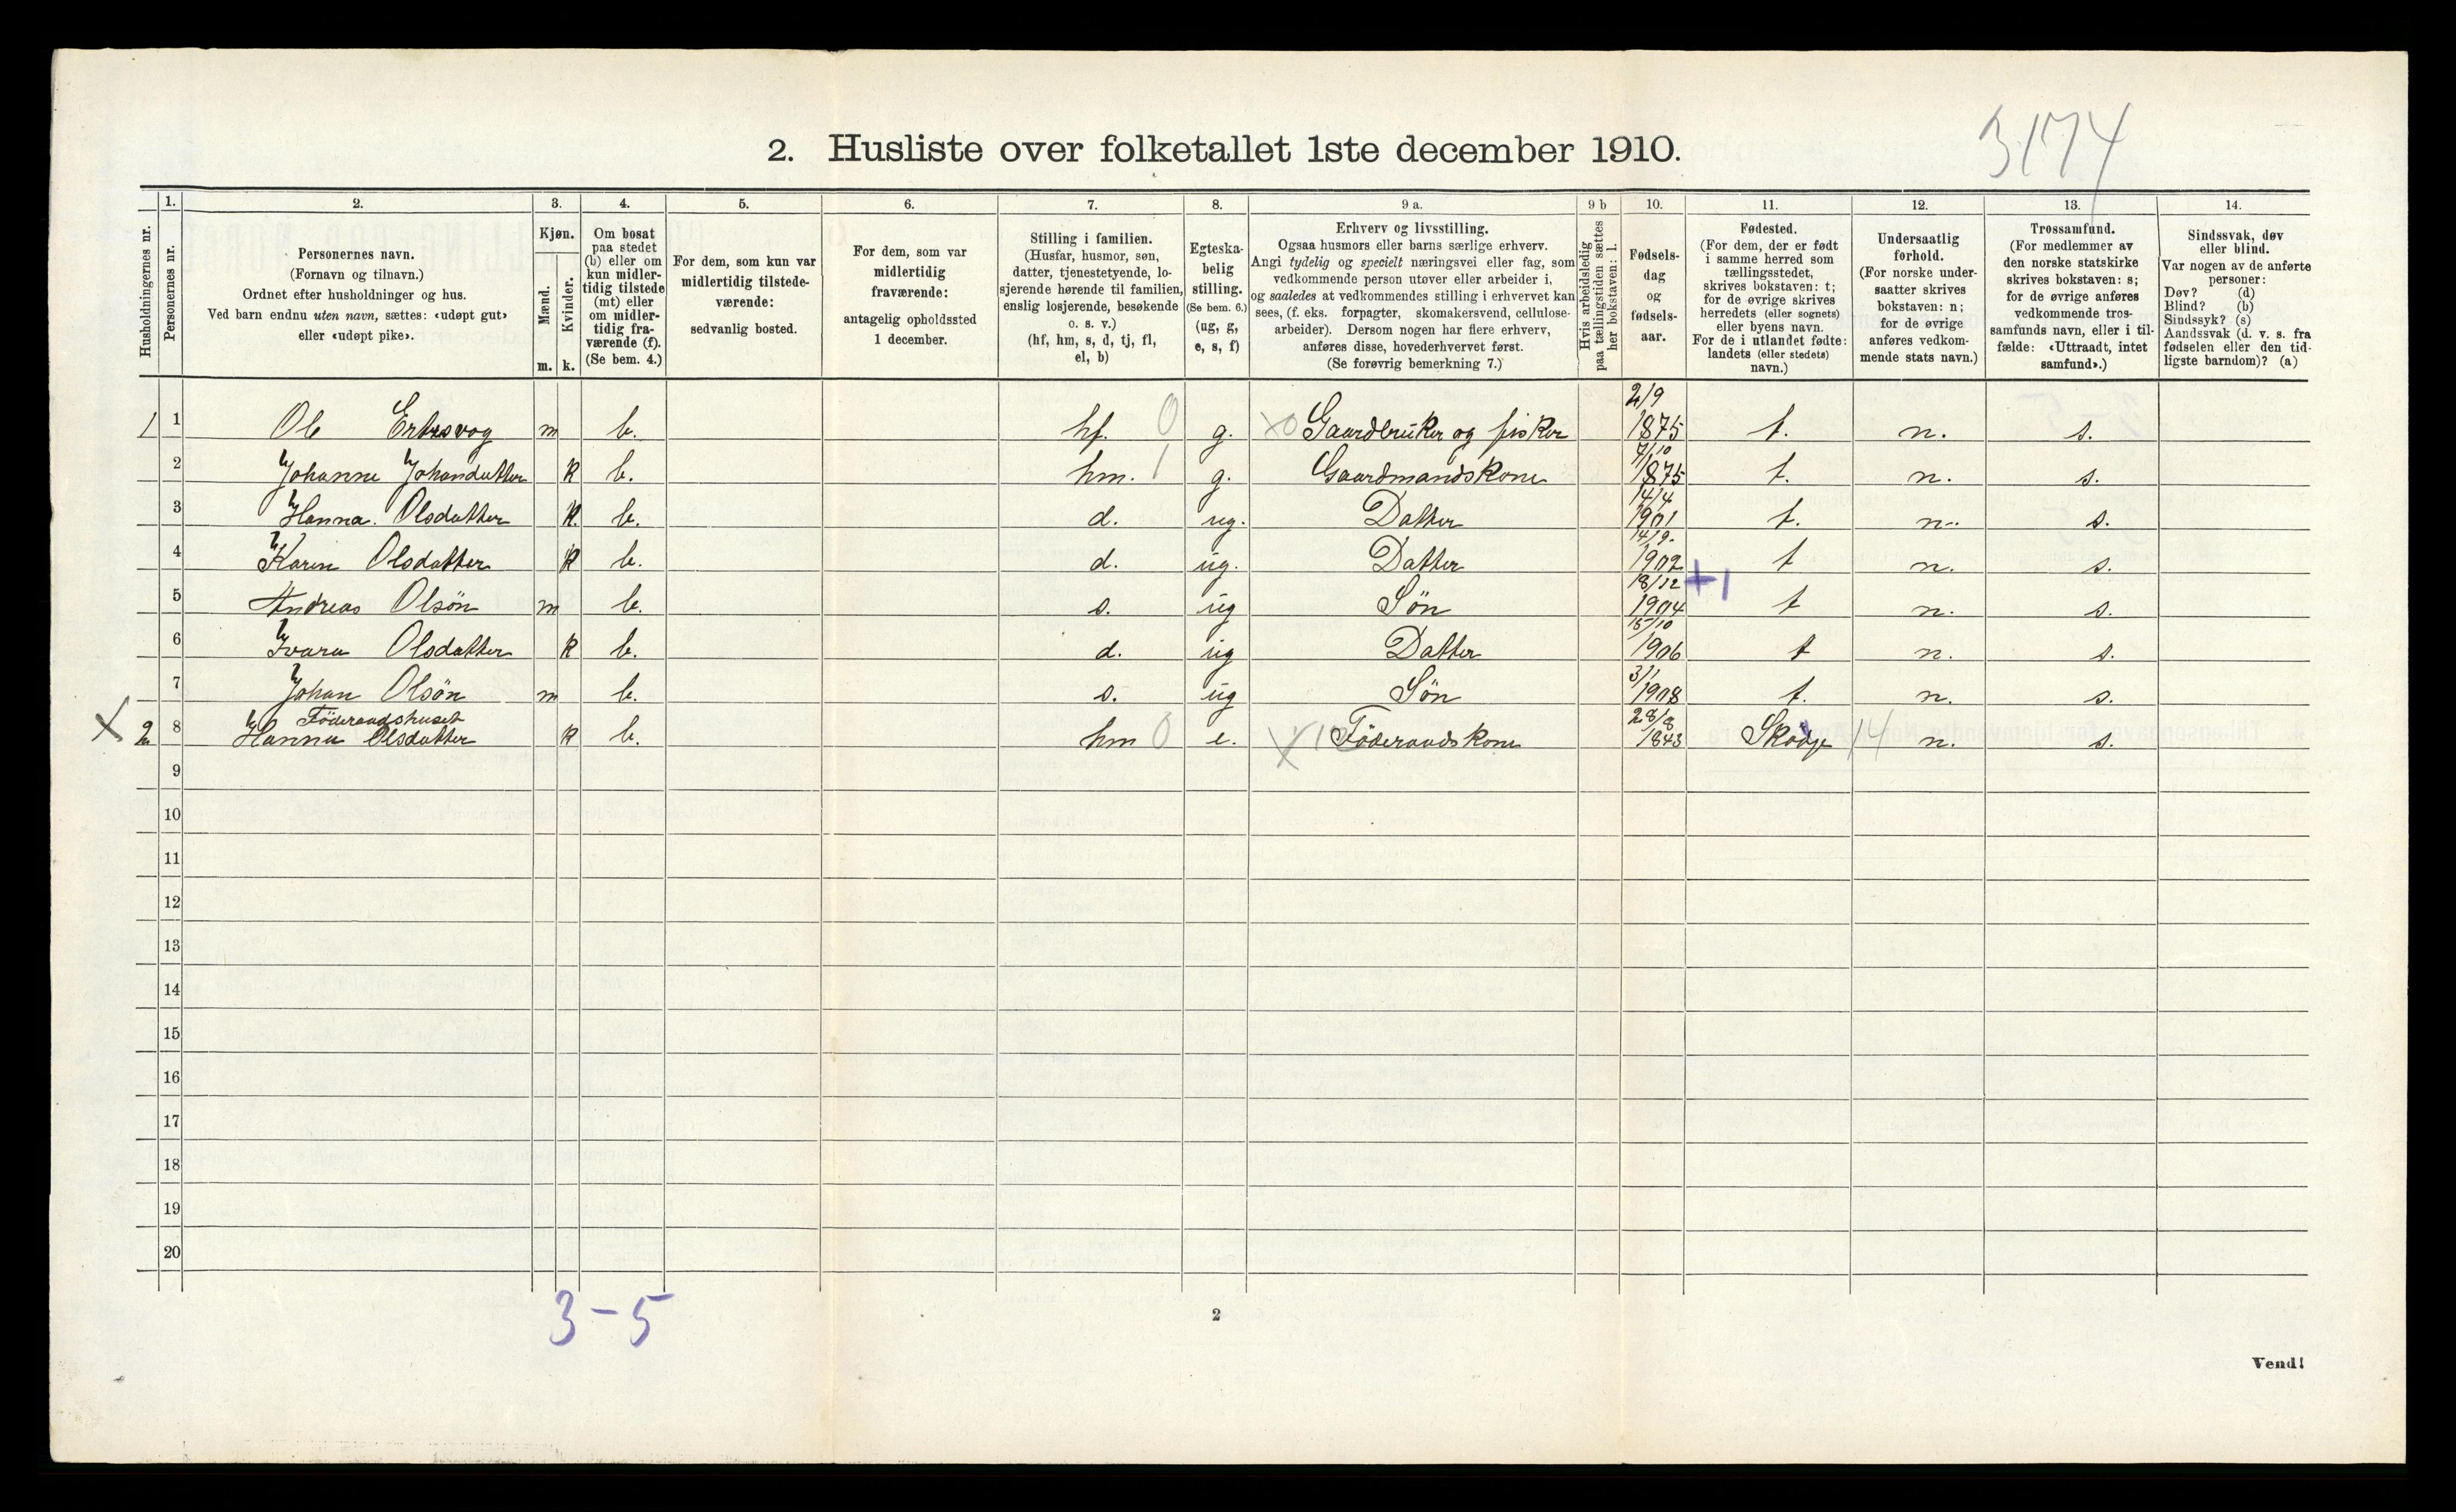 3174
2. Husliste over folketallet 1ste december 1910.
Husholdningernes nr.
1.
Personernes nr.
2.
Personernes navn.
(Fornavn og tilnavn.)
Ordnet efter husholdninger og hus.
Ved barn endnu uten navn, sættes: «udøpt gut»
eller «udøpt pike».
3.
Kjøn.
Mænd.
Kvinder.
m. k.
4.
Om bosat
paa stedet
(b) eller om
kun midler-
tidig tilstede
(mt) eller
om midler-
tidig fra-
værende (f).
(Se bem. 4.)
5.
For dem, som kun var
midlertidig tilstede-
værende:
sedvanlig bosted.
6.
For dem, som var
midlertidig
fraværende:
antagelig opholdssted
1 december.
7.
Stilling i familien.
(Husfar, husmor, søn,
datter, tjenestetyende, lo-
sjerende hørende til familien,
enslig losjerende, besøkende
o. s. v.)
(hf, hm, s, d, tj, fl,
el, b)
8.
Egteska-
belig
stilling.
(Se bem. 6.)
(ug, g,
e, s, f)
9 a.
Erhverv og livsstilling.
Ogsaa husmors eller barns særlige erhverv.
Angi tydelig og specielt næringsvei eller fag, som
vedkommende person utøver eller arbeider i,
og saaledes at vedkommendes stilling i erhvervet kan
sees, (f. eks. forpagter, skomakersvend, cellulose-
arbeider). Dersom nogen har flere erhverv,
anføres disse, hovederhvervet først.
(Se forøvrig bemerkning 7.)
9 b
Hvis arbeidsledig
paa tællingstiden sættes
her bokstaven: l.
10.
Fødsels-
dag
og
fødsels-
aar.
11.
Fødested.
(For dem, der er født
i samme herred som
tællingsstedet,
skrives bokstaven: t;
for de øvrige skrives
herredets (eller sognets)
eller byens navn.
For de i utlandet fødte:
landets (eller stedets)
navn.)
12.
Undersaatlig
forhold.
(For norske under-
saatter skrives
bokstaven: n;
for de øvrige
anføres vedkom-
mende stats navn.)
13.
Trossamfund.
(For medlemmer av
den norske statskirke
skrives bokstaven: s;
for de øvrige anføres
vedkommende tros-
samfunds navn, eller i til-
fælde: «Uttraadt, intet
samfund».)
14.
Sindssvak, døv
eller blind.
Var nogen av de anførte
personer:
Døv? (d)
Blind? (b)
Sindssyk? (s)
Aandssvak (d. v. s. fra
fødselen eller den tid-
ligste barndom)? (a)
1 1 Ole m b. hf. 0 g. x0 Gaardbruker og fisker 2/9 1875 t. n. s.
2 Johanne Johandatter k b. hm. 1 g. Gaardmandskone 7/10 1875 t. n. s.
3 Hanna Olsdatter k b. d. ug. Datter 14/4 1901 t. n. s.
4 Karen Olsdatter k b. d. ug. Datter 14/9. 1902 t n. s.
5 Andreas Olsön m b. s. ug Sön 18/12 1904 +1 t n. s.
6 Ivara Olsdatter k b. d. ug Datter 15/10 1906 t n. s.
7 Johan Olsön m b. s. ug Sön 3/1 1908 t. n. s.
Föderaadshuset
X 2 8 Hanna Olsdatter k b. hm 0 e. Föderaadskone 28/8 1843 Skodje 14 n. s.
9
10
11
12
13
14
15
16
17
18
19
20
3-5
2
Vend!